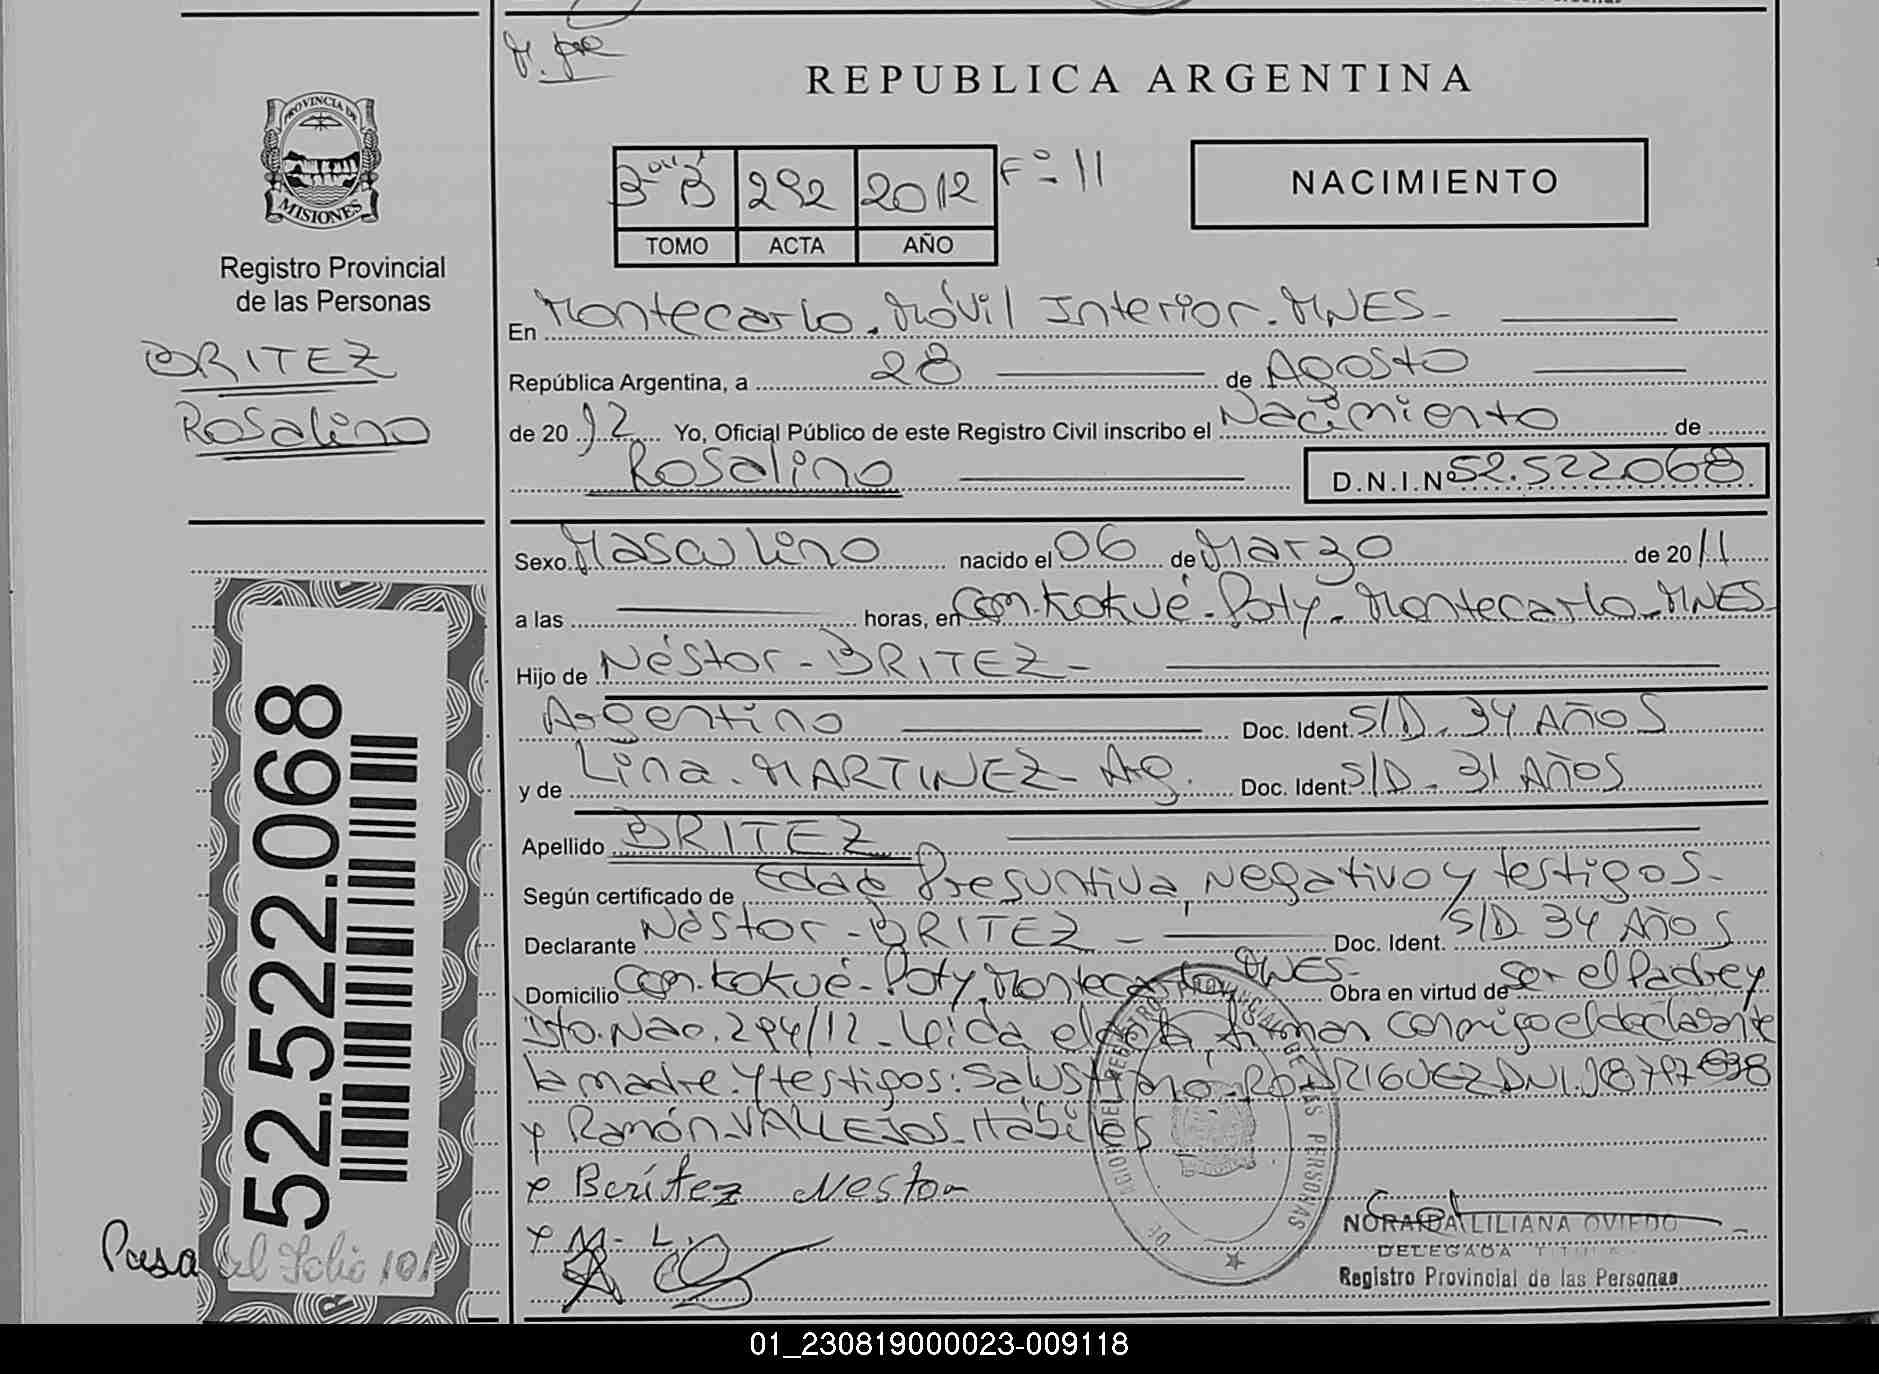 REPUBLICA ARGENTINA
PROVINCIA DE
MISIONES
Registro Provincial
de las Personas
BRITEZ
Rosalino
292 2012 Fº-11
TOMO ACTA AÑO
NACIMIENTO
En Montecarlo. Móvil Interior. MNES-
República Argentina, a 28 de Agosto
de 2012 Yo, Oficial Público de este Registro Civil inscribo el Nacimiento de
Rosalino D.N.I.Nº 52.522.068
Sexo Masculino nacido el 06 de Marzo de 2011
a las horas, en Com. Kokué-Poty-Montecarlo-MNES-
Hijo de Néstor-BRITEZ-
Argentino Doc. Ident. S/D. 34 AÑOS
y de Lina. MARTINEZ-Arg. Doc. Ident. S/D- 31 AÑOS
Apellido BRITEZ
Según certificado de Edad Presuntiva, Negativo y testigos.
Declarante Néstor-BRITEZ- Doc. Ident. S/D 34 AÑOS
Domicilio Com. Kokué-Poty, Montecarlo MNES- Obra en virtud de ser el Padre y
Dto. Nac. 294/12-Leída el acta firman conmigo el declarante
la madre y testigos: Salustiano RODRIGUEZ DNI.
y Ramón-VALLEJOS-Hábiles
x Berítez Nestor
x M-L.
REGISTRO PROVINCIAL DE LAS PERSONAS
NORAIDA LILIANA OVIEDO
DELEGADA TITULAR
Registro Provincial de las Personas
52.522.068
Pasa al Folio 101
01_230819000023-009118